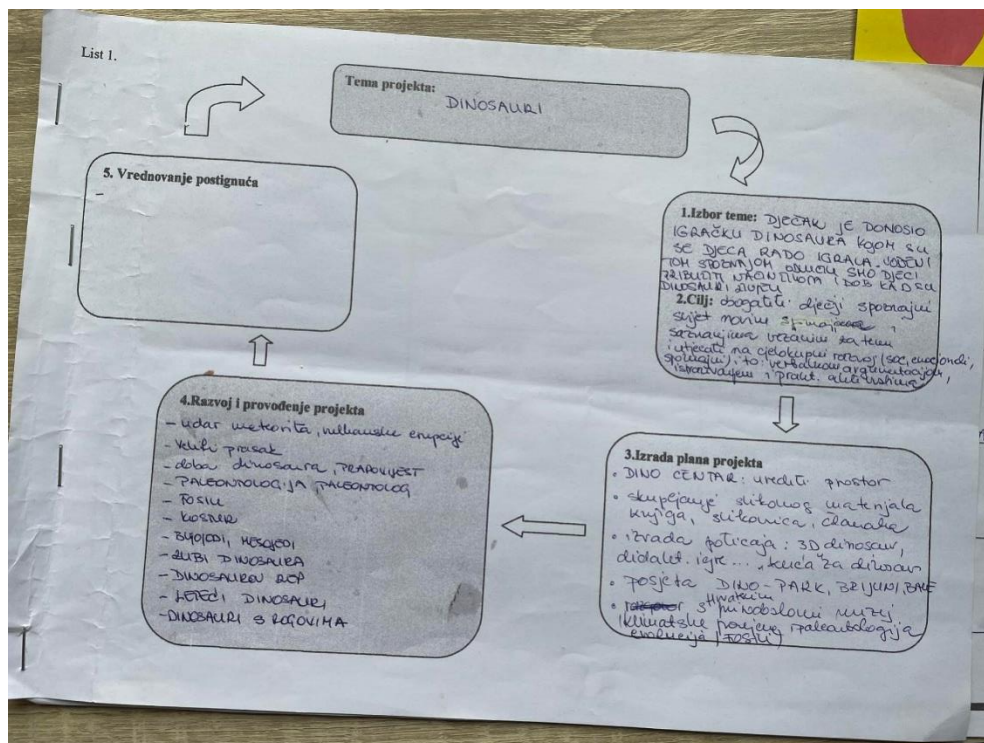 List 1.
Tema projekta:
DINOSAURI
1.Izbor teme: DJEČAK JE DONOSIO
IGRAČKU DINOSAURA KOJOM SU
SE DJECA RADO IGRALA. VOĐENI
TOM SPOZNAJOM ODLUČILI SMO DJECI
PRIBLIŽITI NAČIN ŽIVOTA I DOB KAD SU
DINOSAURI ŽIVJELI
2.Cilj: obogatiti dječji spoznajni
svijet novim
saznanjima vezanim za temu
i utjecati na cjelokupni razvoj (soc, emocionalni,
spoznajni). to verbalnom argumentacijom,
istraživanjem i prakt. aktivnostima
3.Izrada plana projekta
• DINO CENTAR: urediti prostor
• skupljanje slikovnog materijala
knjiga, slikovnica, članaka
• izrada poticaja: 3D dinosaur,
didakt. igre ... kuća za dinosaure
• posjeta DINO-PARK, BRIJUNI, BALE
• s Hrvatskim prirodoslovni muzej
klimatske promjene, paleontologija
evolucija, FOSILI
4.Razvoj i provođenje projekta
- udar meteorita, vulkanske erupcije
- Veliki prasak
- doba dinosaura, PRAPOVIJEST
- PALEONTOLOGIJA PALEONTOLOG
- FOSILI
- KOSTUR
- BILJOJEDI, MESOJEDI
- ZUBI DINOSAURA
- DINOSAUROV REP
- LETEĆI DINOSAURI
- DINOSAURI S ROGOVIMA
5. Vrednovanje postignuća
-